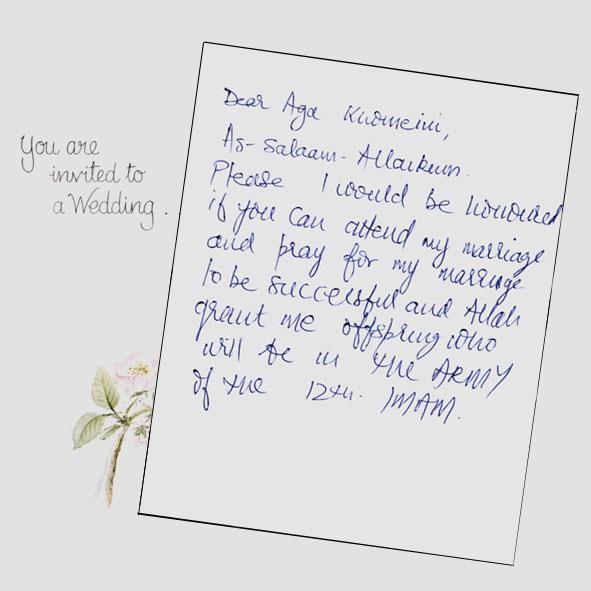 You are
invited to
a Wedding.
Dear Aga Khomeini,
As-Salaam-Allaikum.
Please I would be honoured
if you can attend my marriage
and pray for my marriage
to be successful and Allah
grant me offspring who
will be in the ARMY
of the 12th. IMAM.